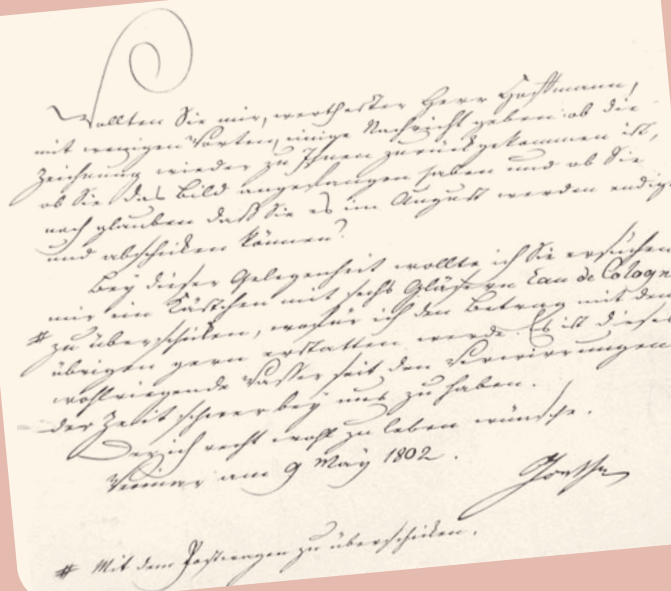 Wollten Sie mir, werthester Herr Hoffmann,
mit wenigen Worten, einige Nachricht geben: ob die
Zeichnung wieder zu Ihnen zurückgekommen ist,
ob Sie das Bild angefangen haben und ob Sie
noch glauben daß Sie es im August werden endig
und abschicken können?
Bey dieser Gelegenheit wollte ich Sie ersuchen
mir ein Kästchen mit sechs Gläsern Eau de Cologn
# zu überschicken, wofür ich den Betrag mit dem
übrigen gern erstatten werde. Es ist dieses
wohlriegende Wasser seit den Verwirrungen
der Zeit schwer bey uns zu haben.
Der ich recht wohl zu leben wünsche.
Weimar am 9 May 1802.
Goethe
# Mit dem Postwagen zu überschicken.